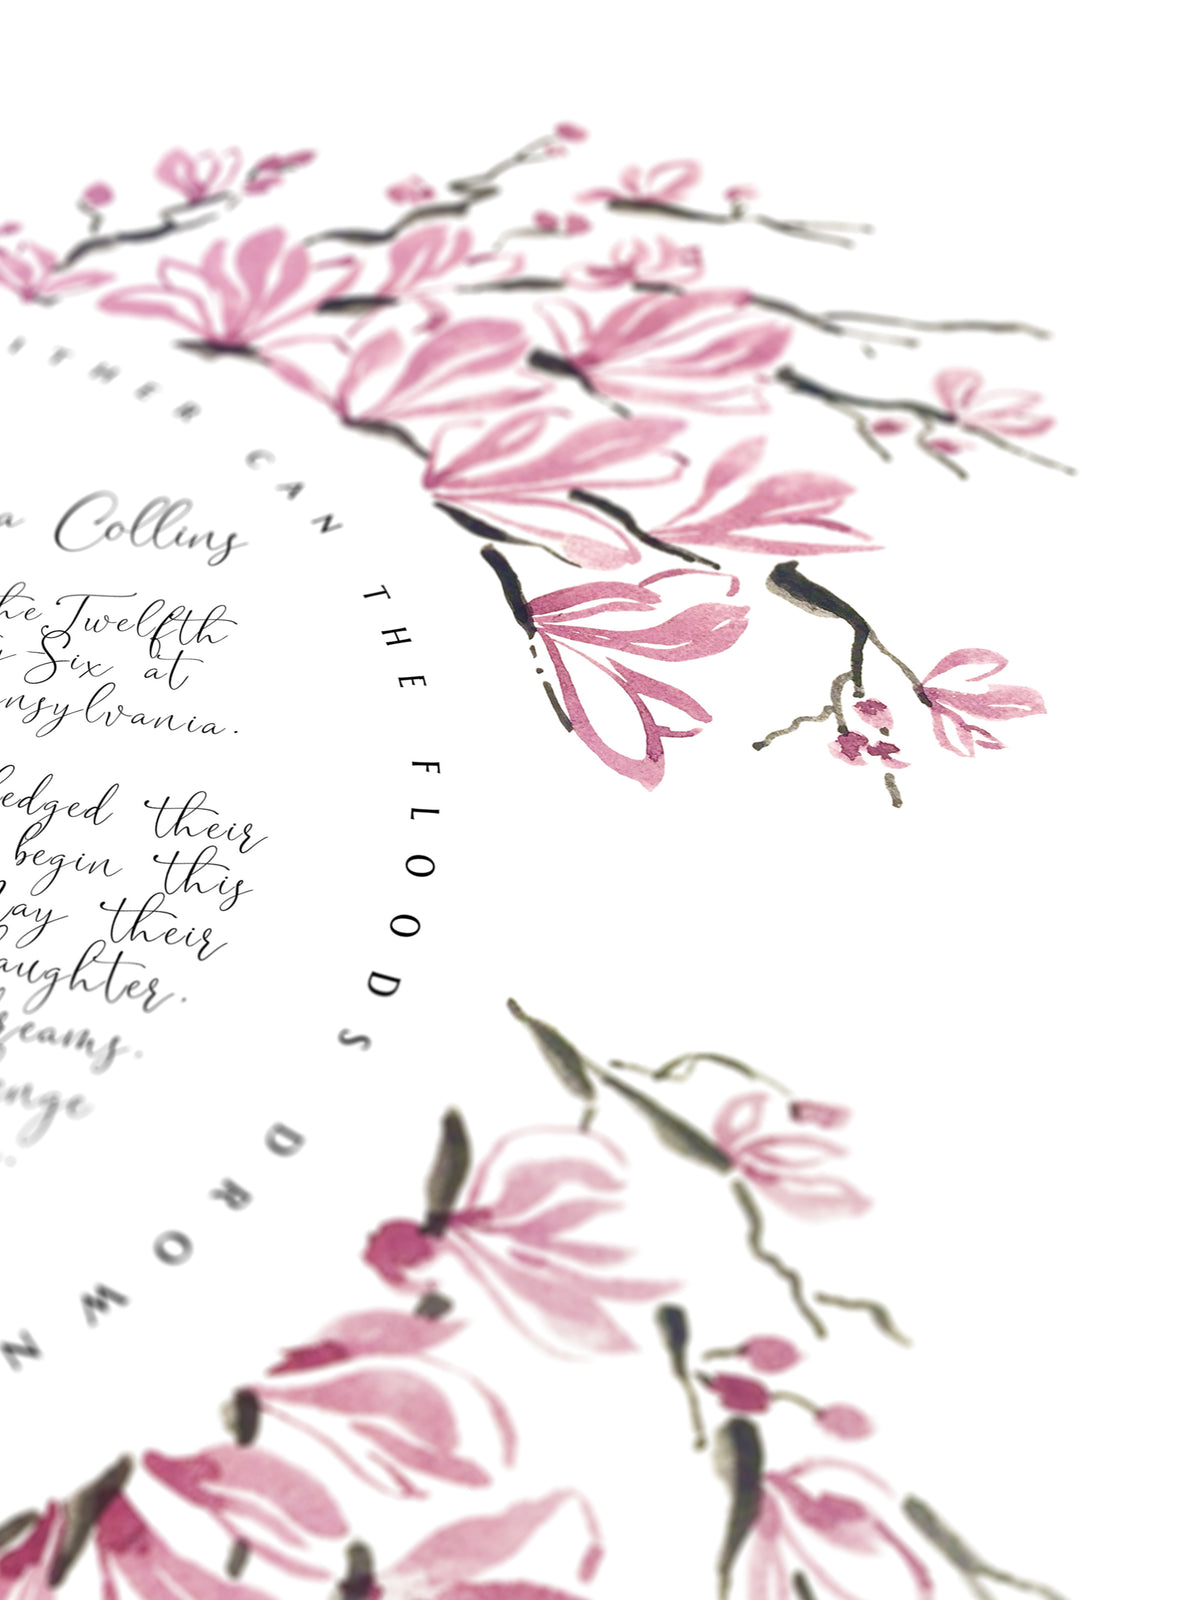 ITHER CAN THE FLOODS DROWN
a Collins
he Twelfth
Six at
nsylvania.
ledged their
begin this
ay their
aughter.
reams.
enge